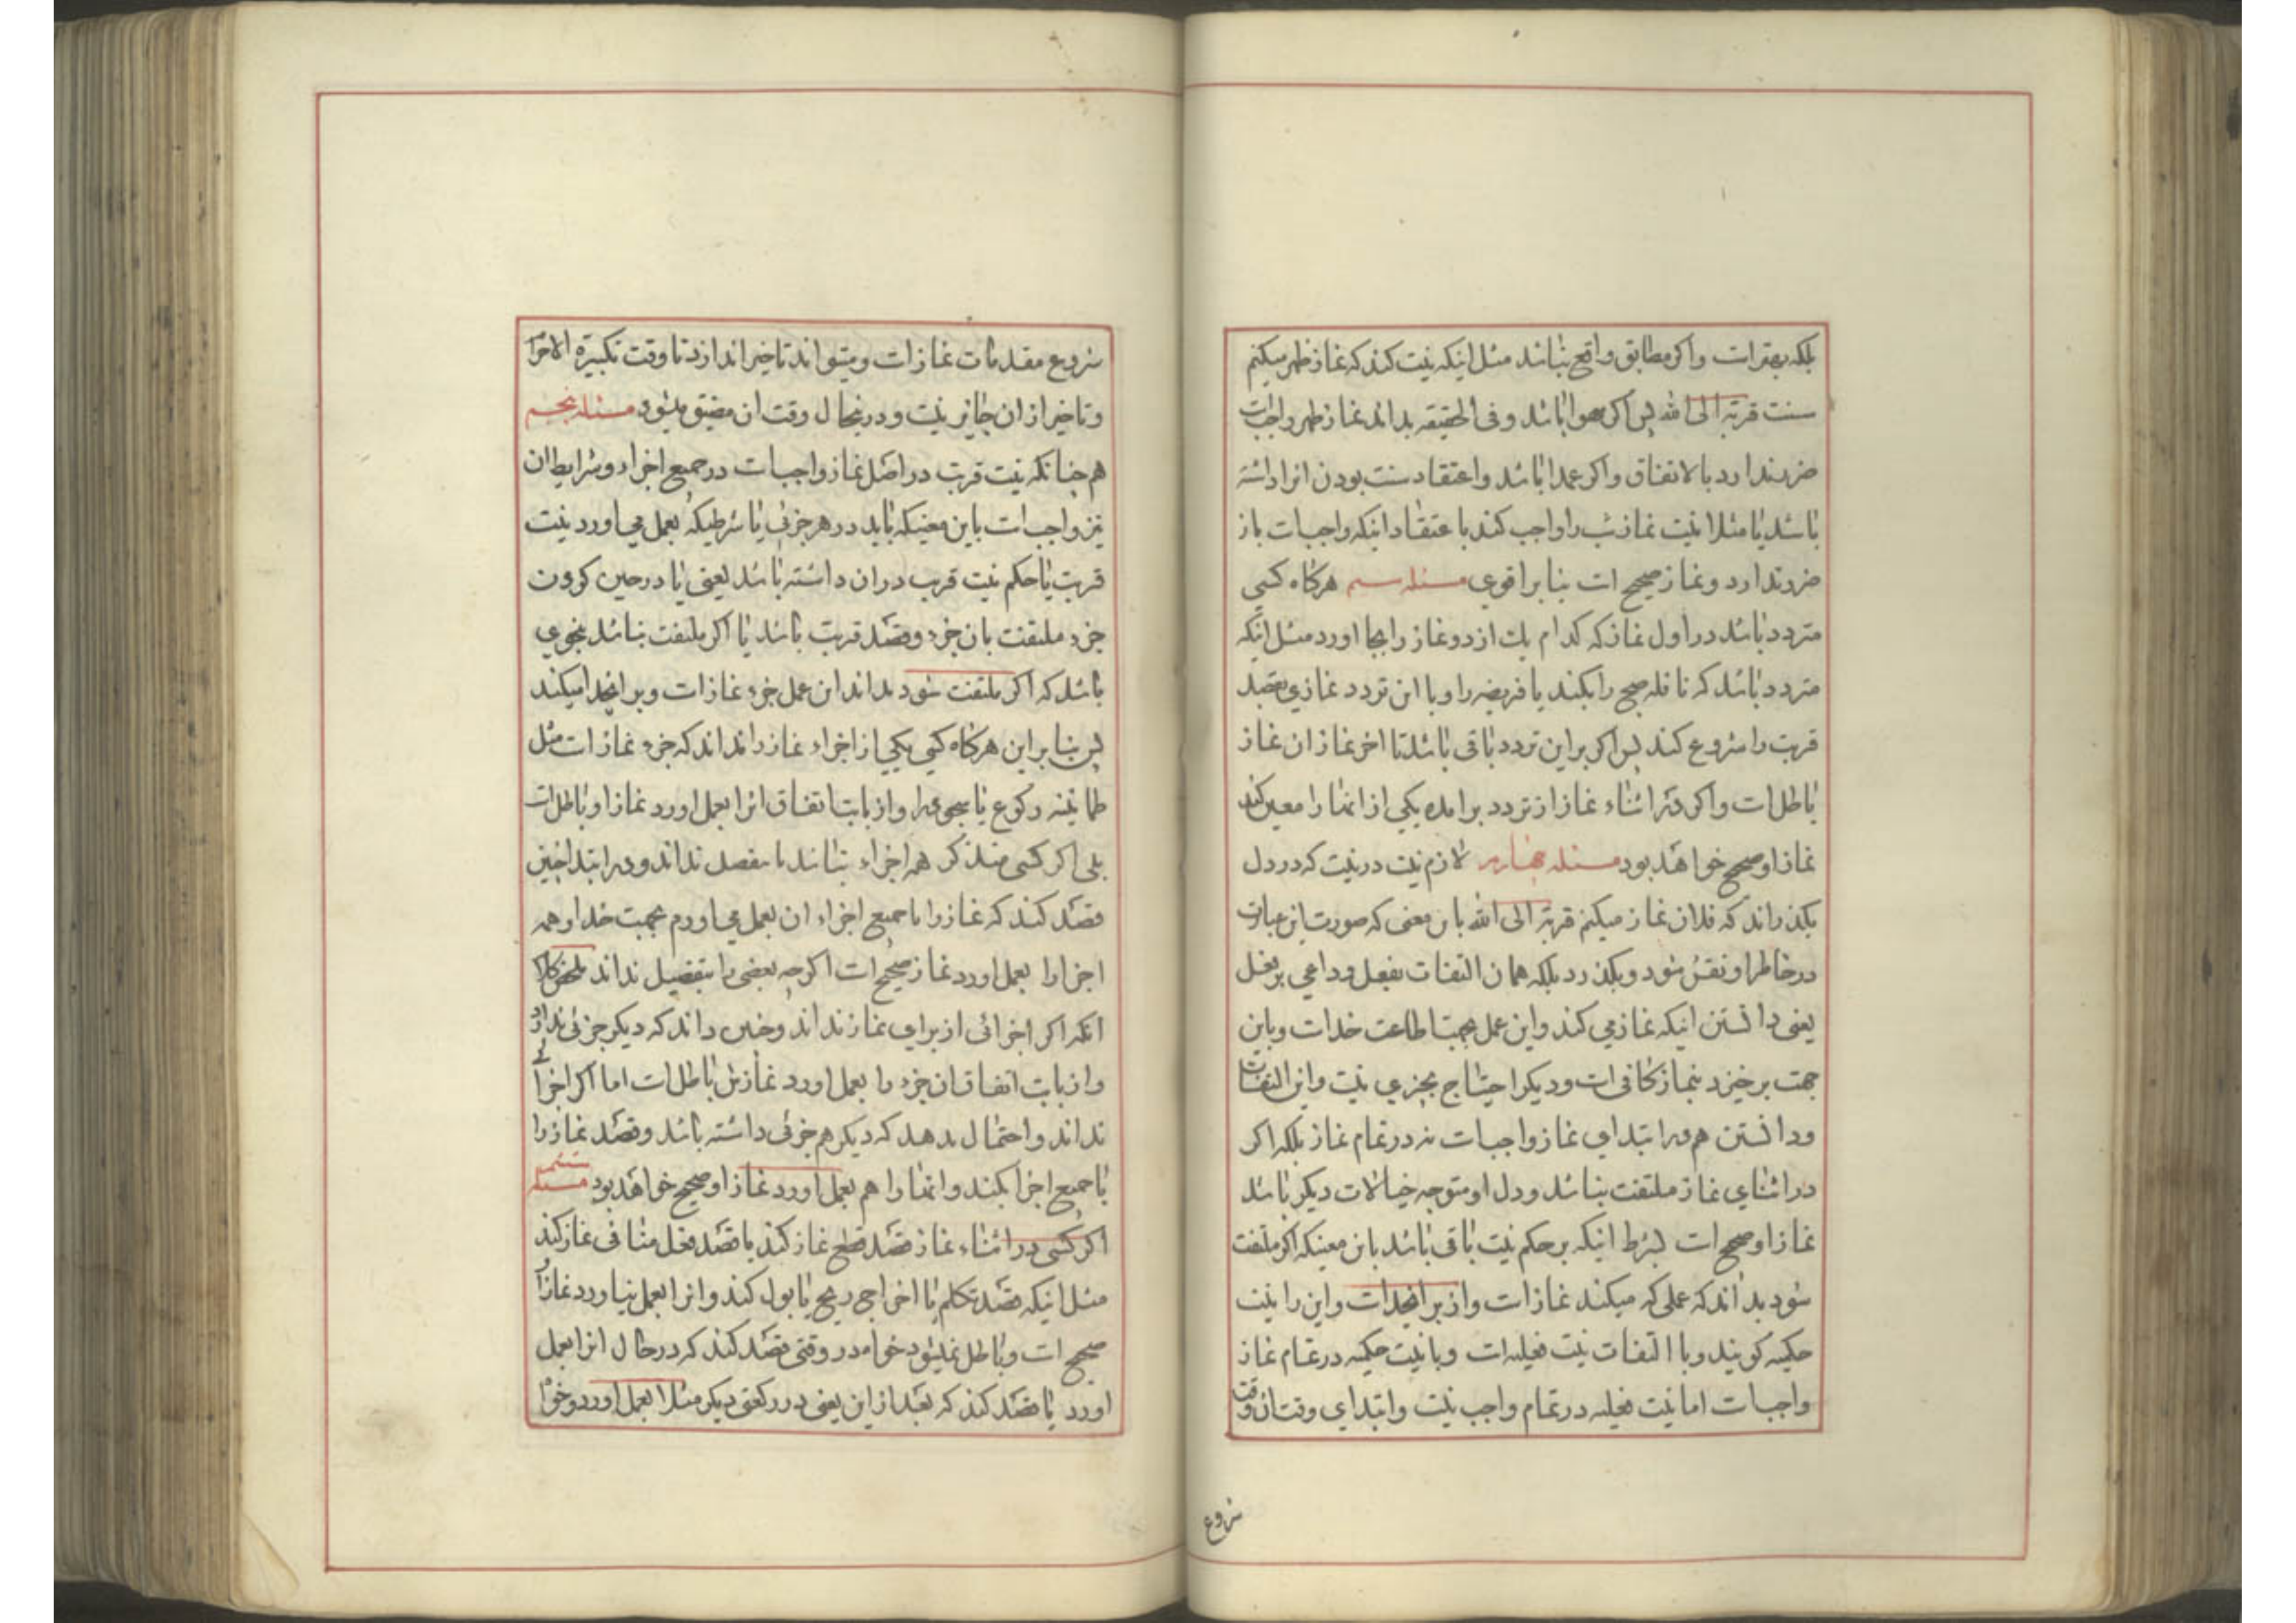 بلکه بهتر است واکر مطابق واقع نباشد مثل اینکه نیت کند که نماز ظهر میکنم
سنت قربة الی الله پس اکر سهوا باشد وفی الحقیقه بداند نماز ظهر واجبست
ضرر ندارد بالاتفاق واکر عمدا باشد واعتقاد سنت بودن انرا داشته
باشد یا مثلا نیت نماز شب را واجب کند باعتقاد اینکه واجبست باز
ضرر ندارد ونماز صحیح است بنابر اقوی مسئله سیم هرکاه کسی
متردد باشد در اول نماز که کدام یک از دو نماز را بجا اورد مثل انکه
متردد باشد که نافله صبح را بکند یا فریضه را وبا این تردد نمازی بقصد
قربت را شروع کند پس اکر براین تردد باقی باشد تا اخر نماز ان نماز
باطل است واکر در اثناء نماز از تردد برامده یکی از انها را معین کند
نماز او صحیح خواهد بود مسئله چهارم لازم نیست در نیت که در دل
بکذراند که فلان نماز میکنم قربة الی الله باین معنی که صورت این عبارت
در خاطر او نقش شود وبکذرد بلکه همان التفات بفعل وداعی بر فعل
یعنی دانستن اینکه نماز می کند واین عمل بجهت اطاعت خداست وباین
جهت برخیزد بنماز کافی است ودیکر احتیاج بچیزی نیست واین التفات
ودانستن هم در ابتدای نماز واجبست نه در تمام نماز بلکه اکر
در اثنای نماز ملتفت نباشد ودل او متوجه خیالات دیکر باشد
نماز او صحیح است بشرط انیکه بر حکم نیت باقی باشد باین معنیکه اکر ملتفت
شود بداند که عملی که میکند نماز است واز برای خداست واین را نیت
حکمیه کویند وبا التفات نیت فعلیه است وبا نیت حکمیه در تمام نماز
واجبست اما نیت فعلیه در تمام واجب نیست وابتدای وقت ان وقت
شروع
شروع مقدمات نماز است ومیتواند تاخیر اندازد تا وقت تکبیرة الاحرام
وتاخیر از ان جایز نیست ودر اینحال وقت ان مضیق میشود مسئله پنجم
هم چنانکه نیت قربت در اصل نماز واجبست در جمیع اجزاء وشرایط ان
نیز واجبست باین معنیکه باید در هر جزئی یا شرطیکه بعمل می اورد نیت
قربت یا حکم نیت قربت دران داشته باشد یعنی یا در حین کردن
جزء ملتفت بان جزء وقصد قربت باشد یا اکر ملتفت نباشد بنحوی
باشد که اکر ملتفت شود بداند ان عمل جزء نماز است وبرای خدا میکند
پس بنابر این هرکاه کسی یکی از اجزاء نماز را نداند که جزء نماز است مثل
طمانینه رکوع یا سجود را واز باب اتفاق انرا بعمل اورد نماز او باطل است
بلی اکر کسی متذکر همه اجزاء نباشد یا مفصل نداند ودر ابتدا چنین
قصد کند که نماز را با جمیع اجزاء ان بعمل می اورم بجهت خدا وهمه
اجزا را بعمل اورد نماز صحیح است اکرچه بعضی را بتفصیل نداند ملخص کلام
انکه اکر اجزائی از برای نماز نداند وچنین داند که دیکر جزئی ندارد
واز باب اتفاق ان جزء را بعمل اورد نمازش باطل است اما اکر اجزائی
نداند واحتمال بدهد که دیکر هم جزئی داشته باشد وقصد نماز را
با جمیع اجزا بکند وانها را هم بعمل اورد نماز او صحیح خواهد بود مسئله ششم
اکر کسی در اثناء نماز قصد قطع نماز کند یا قصد فعل منافی نماز کند
مثل انیکه قصد تکلم یا اخراج ریح یا بول کند وانرا بعمل نیاورد نماز او
صحیح است وباطل نمیشود خواه در وقتی قصد کند که در حال انرا بعمل
اورد یا قصد کند که بعد از این یعنی در رکعتی دیکر مثلا بعمل اورد وخواه